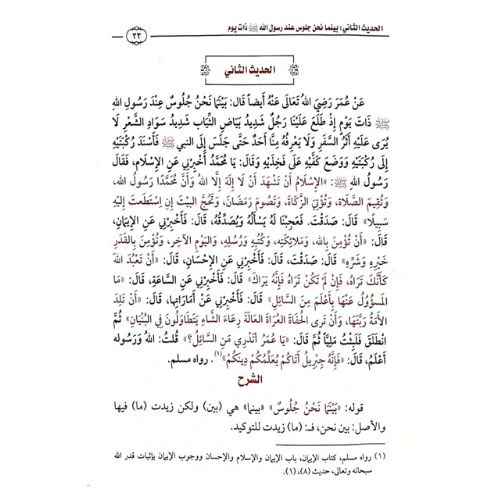 الحديث الثاني: بينما نحن جلوس عند رسول الله ﷺ ذات يوم
٢٣
الحديث الثاني
عَنْ عُمَرَ رَضِيَ اللهُ تَعَالَى عَنْهُ أَيضاً قَالَ: بَيْنَمَا نَحْنُ جُلُوسٌ عِنْدَ رَسُولِ اللهِ
ﷺ ذَاتَ يَوْمٍ إِذْ طَلَعَ عَلَيْنَا رَجُلٌ شَدِيدُ بَيَاضِ الثِّيَابِ شَدِيدُ سَوَادِ الشَّعْرِ لَا
يُرَى عَلَيْهِ أَثَرُ السَّفَرِ وَلَا يَعْرِفُهُ مِنَّا أَحَدٌ حَتَّى جَلَسَ إِلَى النبي ﷺ فَأَسْنَدَ رُكْبَتَيْهِ
إِلَى رُكْبَتَيْهِ وَوَضَعَ كَفَّيْهِ عَلَى فَخِذَيْهِ وَقَالَ: يَا مُحَمَّدُ أَخْبِرْنِي عَنِ الإِسْلَامِ، فَقَالَ
رَسُولُ اللهِ ﷺ: «الإِسْلَامُ أَنْ تَشْهَدَ أَنْ لَا إِلَهَ إِلَّا اللهُ وَأَنَّ مُحَمَّدًا رَسُولُ الله،
وَتُقِيمَ الصَّلَاةَ، وَتُؤْتِيَ الزَّكَاةَ، وَتَصُومَ رَمَضَانَ، وَتَحُجَّ البَيْتَ إِنِ اسْتَطَعْتَ إِلَيْهِ
سَبِيلًا» قَالَ: صَدَقْتَ. فَعَجِبْنَا لَهُ يَسْأَلُهُ وَيُصَدِّقُهُ، قَالَ: فَأَخْبِرْنِي عَنِ الإِيمَانِ،
قَالَ: «أَنْ تُؤْمِنَ بِالله، وَمَلَائِكَتِهِ، وَكُتُبِهِ وَرُسُلِهِ، وَاليَوْمِ الآخِرِ، وَتُؤْمِنَ بِالقَدَرِ
خَيْرِهِ وَشَرِّهِ» قَالَ: صَدَقْتَ، قَالَ: فَأَخْبِرْنِي عَنِ الإِحْسَانِ، قَالَ: «أَنْ تَعْبُدَ اللهَ
كَأَنَّكَ تَرَاهُ، فَإِنْ لَمْ تَكُنْ تَرَاهُ فَإِنَّهُ يَرَاكَ» قَالَ: فَأَخْبِرْنِي عَنِ السَّاعَةِ، قَالَ: «مَا
المَسْؤُولُ عَنْهَا بِأَعْلَمَ مِنَ السَّائِلِ» قَالَ: فَأَخْبِرْنِي عَنْ أَمَارَاتِهَا، قَالَ: «أَنْ تَلِدَ
الأَمَةُ رَبَّتَهَا، وَأَنْ تَرَى الحُفَاةَ العُرَاةَ العَالَةَ رِعَاءَ الشَّاءِ يَتَطَاوَلُونَ فِي البُنْيَانِ» ثُمَّ
انْطَلَقَ فَلَبِثْتُ مَلِيًّا ثُمَّ قَالَ: «يَا عُمَرُ أَتَدْرِي مَنِ السَّائِلُ؟» قُلْتُ: اللهُ وَرَسُوله
أَعْلَمُ، قَالَ: «فَإِنَّهُ جِبْرِيلُ أَتَاكُمْ يُعَلِّمُكُمْ دِينَكُمْ»(١). رواه مسلم.
الشرح
قوله: «بَيْنَمَا نَحْنُ جُلُوسٌ» «بينما» هي (بين) ولكن زيدت (ما) فيها
والأصل: بين نحن، فـ: (ما) زيدت للتوكيد.
(١) رواه مسلم، كتاب الإيمان، باب الإيمان والإسلام والإحسان ووجوب الإيمان بإثبات قدر الله
سبحانه وتعالى، حديث (٨)، (١).